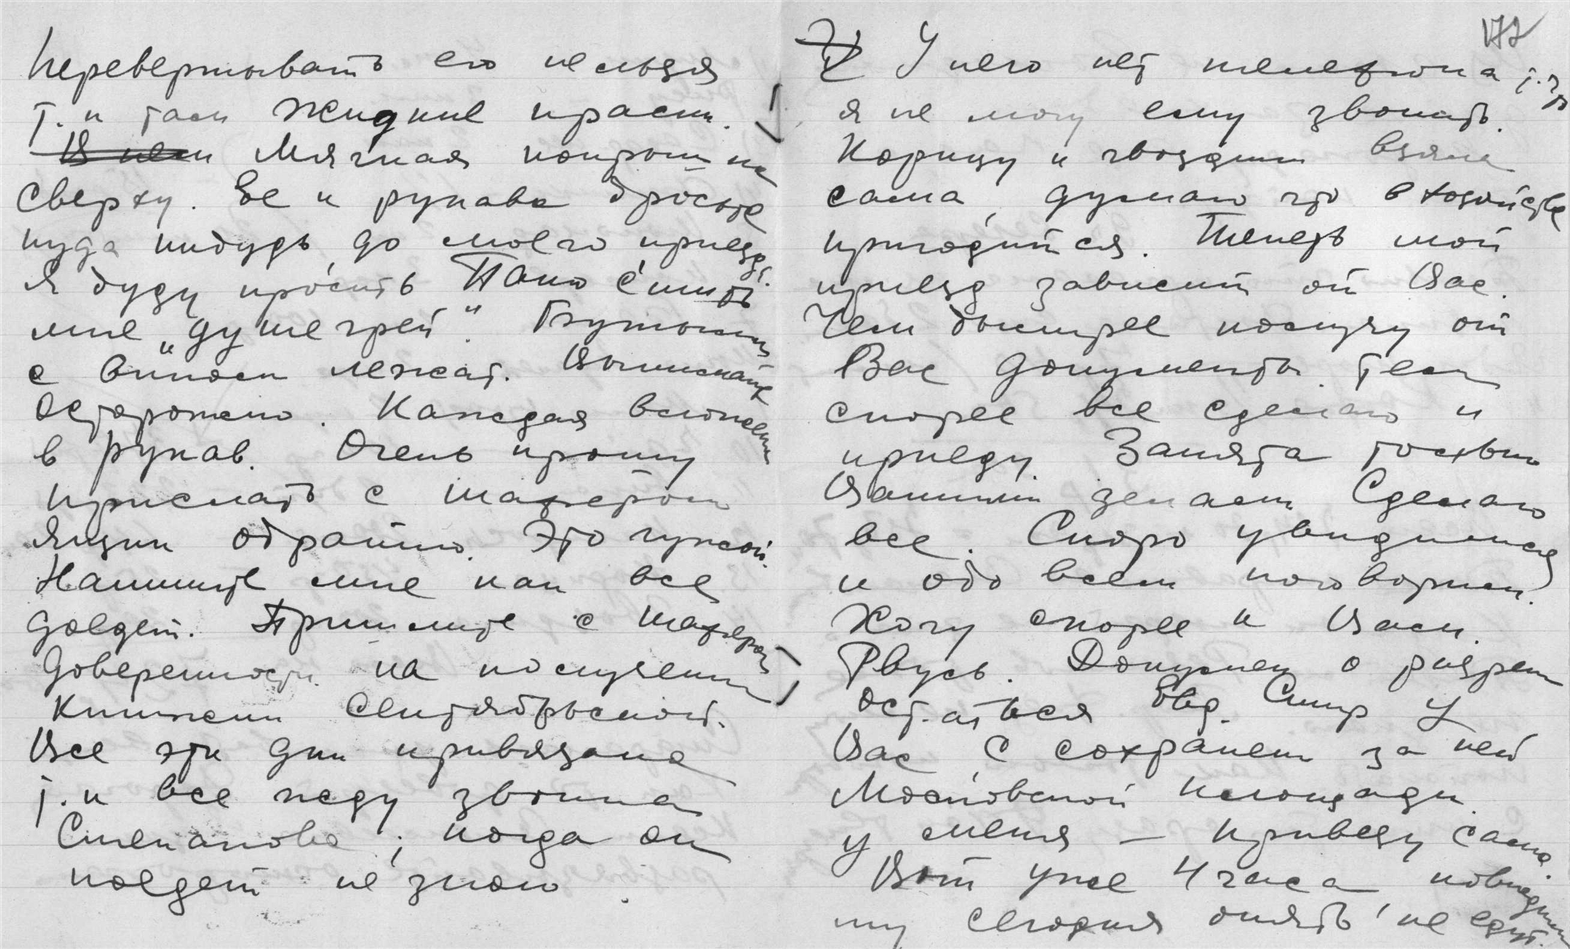 перевертывать его нельзя
т. к там жидкие краски.
Мягкая покрышка
сверху. Ее и рукава бросьте
куда нибудь до моего приезда.
Я буду просить Паню сшить
мне „душегрей“. Бутылки
с вином лежат. Вынимайте
осторожно. Каждая вложена
в рукав. Очень прошу
прислать с шофером
ящик обратно. Это чужой.
Напишите мне как все
доедет. Пришлите с шофером
доверенность на получение
книжки сентябрьской.
Все эти дни привязана
т. к все жду звонка
Степанова, когда он
поедет не знаю.
172
У него нет телефона т. что
я не могу ему звонить.
Корицу и гвоздику взяла
сама, думаю что в хозяйстве
пригодится. Теперь мой
приезд зависит от Вас.
Чем быстрее получу от
Вас документы тем
скорее все сделаю и
приеду. Занята гостью
Вашими делами. Сделаю
все. Скоро увидимся
и обо всем поговорим.
Хочу скорее к Вам.
Рвусь. Документ о разреш
остаться Евд. Спир у
Вас, с сохранен за ней
Московской площади
у меня — привезу сама.
Вот уже 4 часа
сегодня опять не едут.